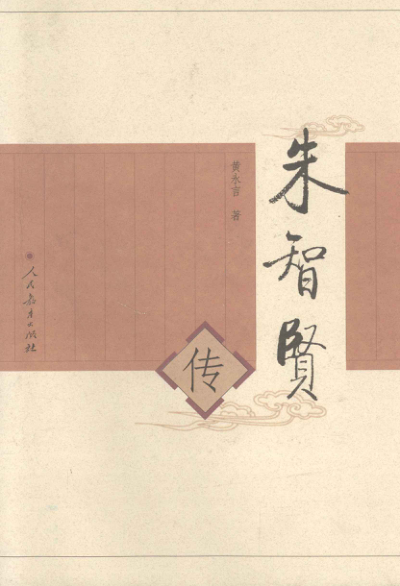 朱智賢
传
黄永言 著
人民教育出版社